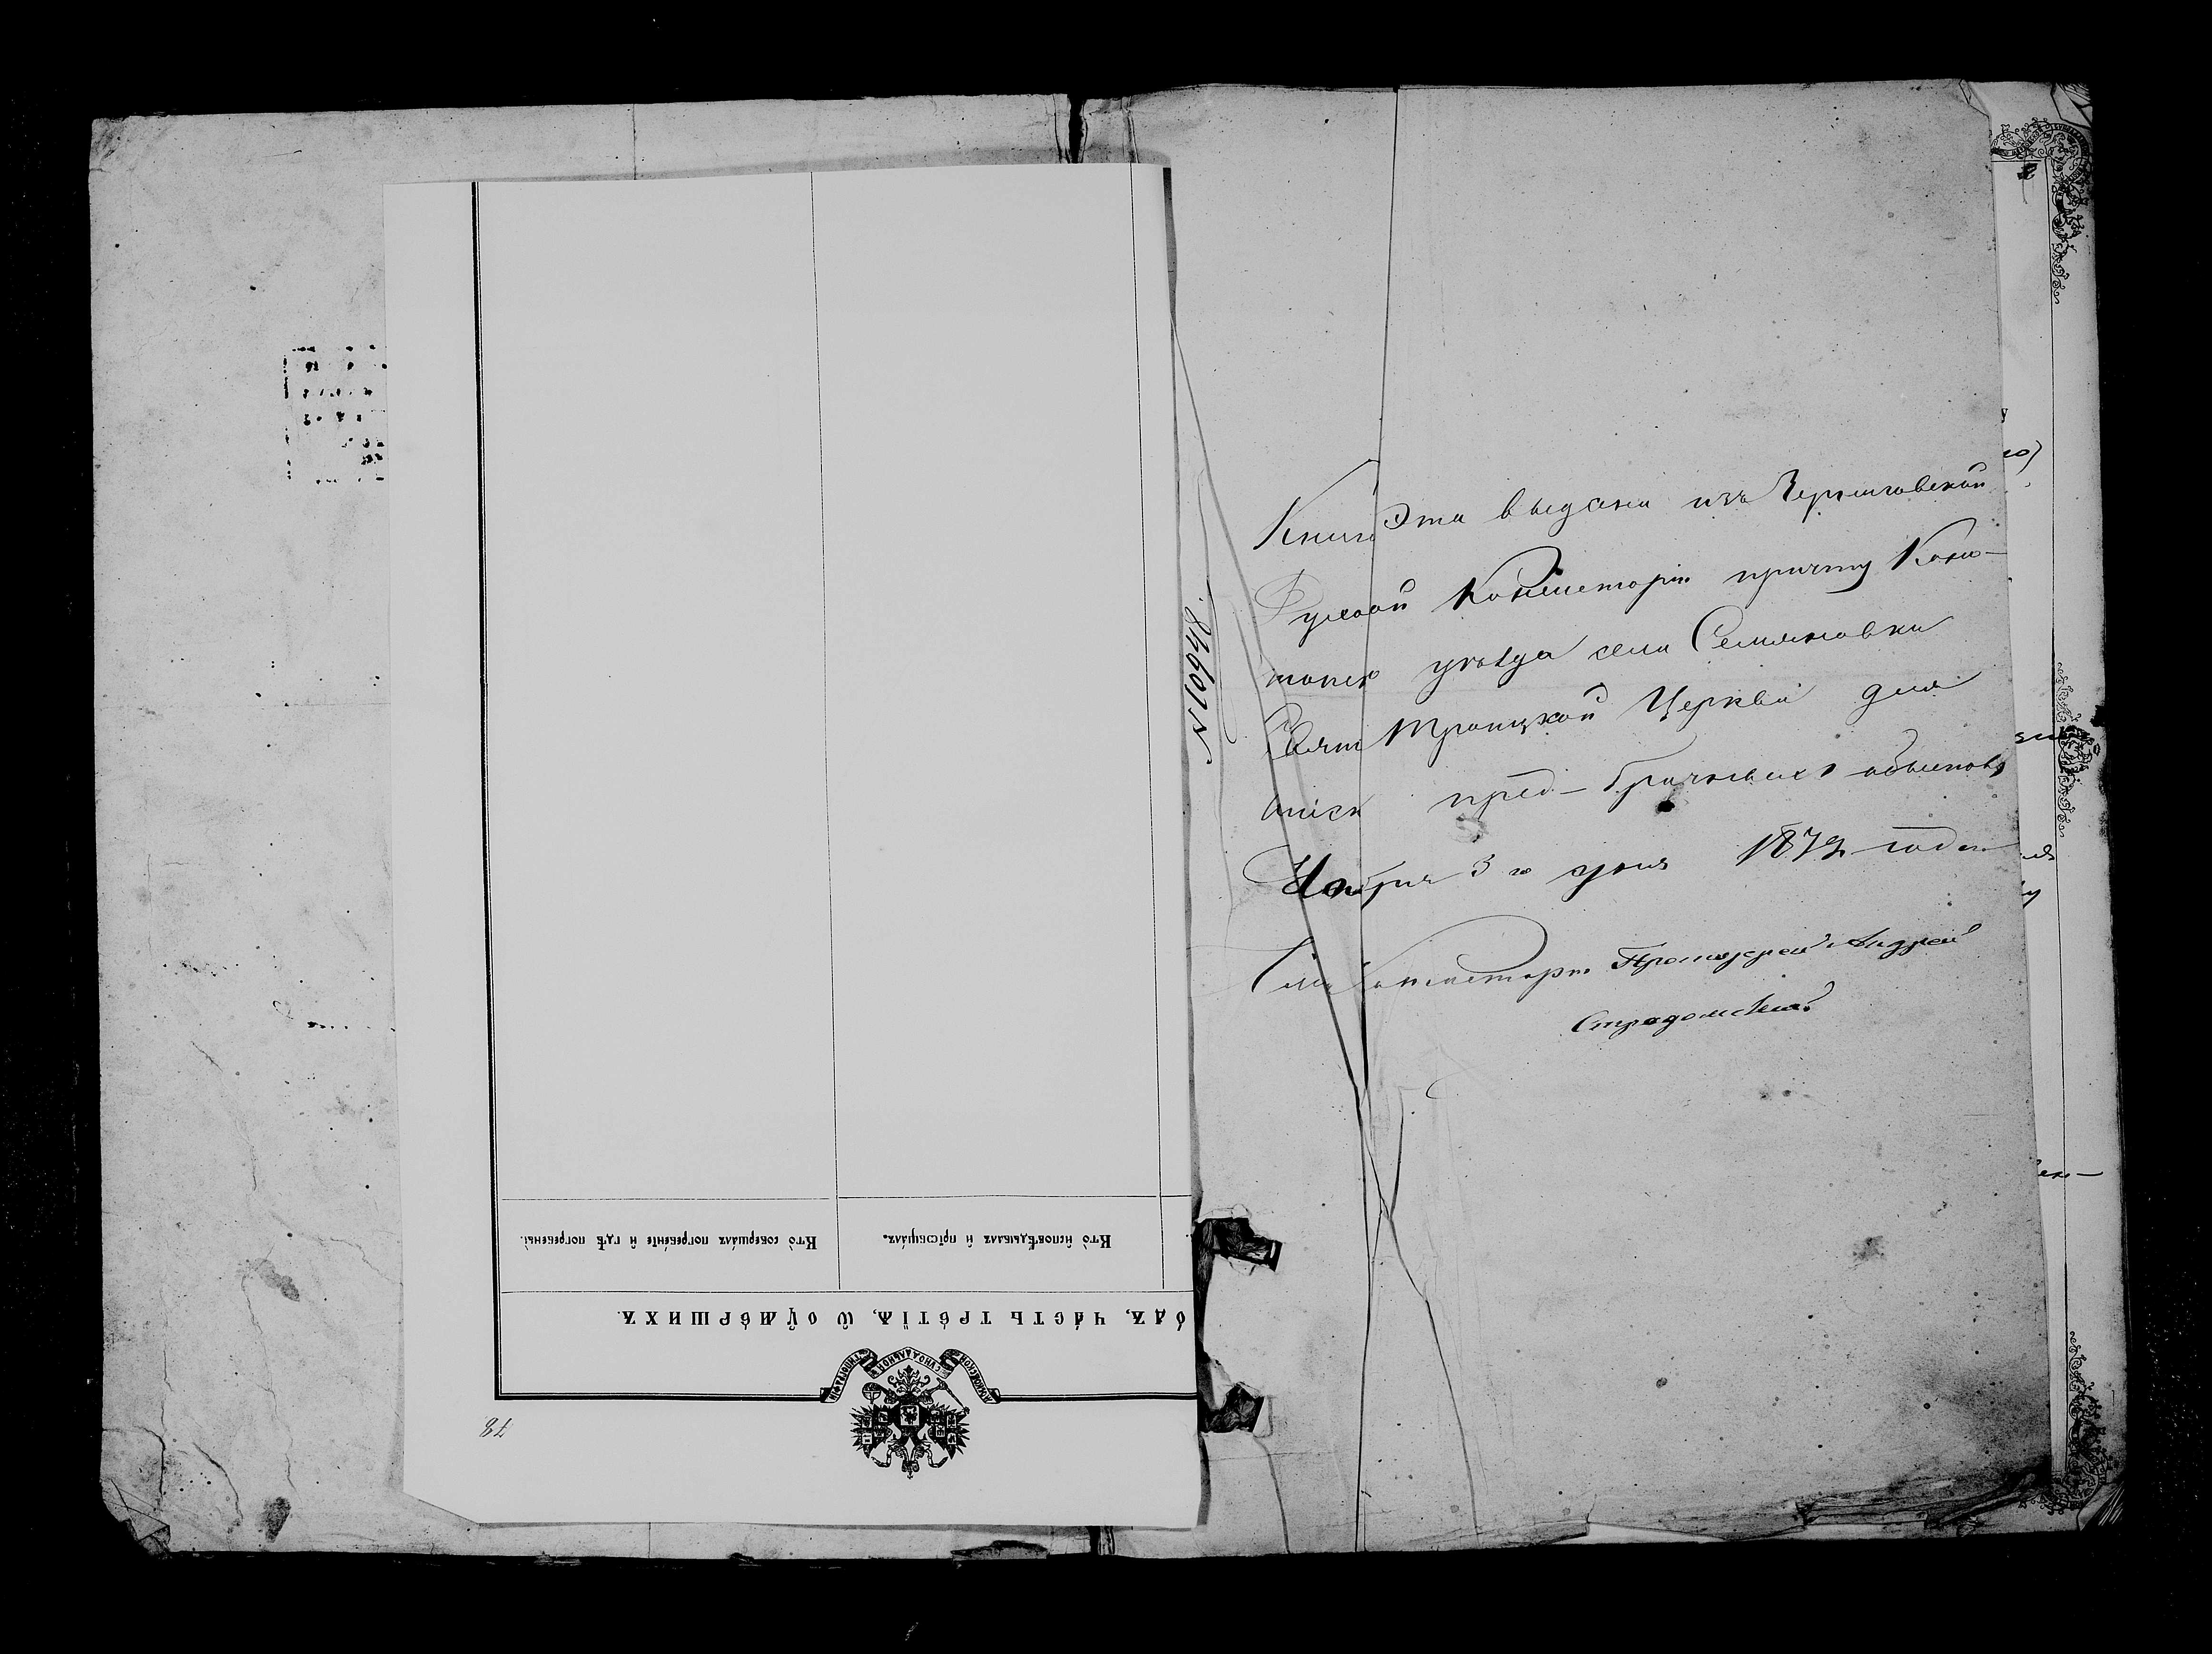 Книга Эта выдана изъ Черниговской
Духовной Консисторіи причту Коно-
топск уѣзда села Семяновки
Свято Троицкой Церкви для
описи пред-брачныхъ обысковъ
Ноября 3 го дня 1873 года
Член Консисторіи Протоіерей Андрей
Страдомскій
№ 10948.
Кто̀ соверша́лъ погребе́нїе и҆ гдѣ̀ погребены̀.
Кто̀ и҆сповѣ́дывалъ и҆ прїѡбща́лъ.
о́дъ, ча́сть тре́тїѧ, ѡ҆ оу҆ме́ршихъ.
СѴНОДАЛЬНОЙ ТИПОГРАФІИ